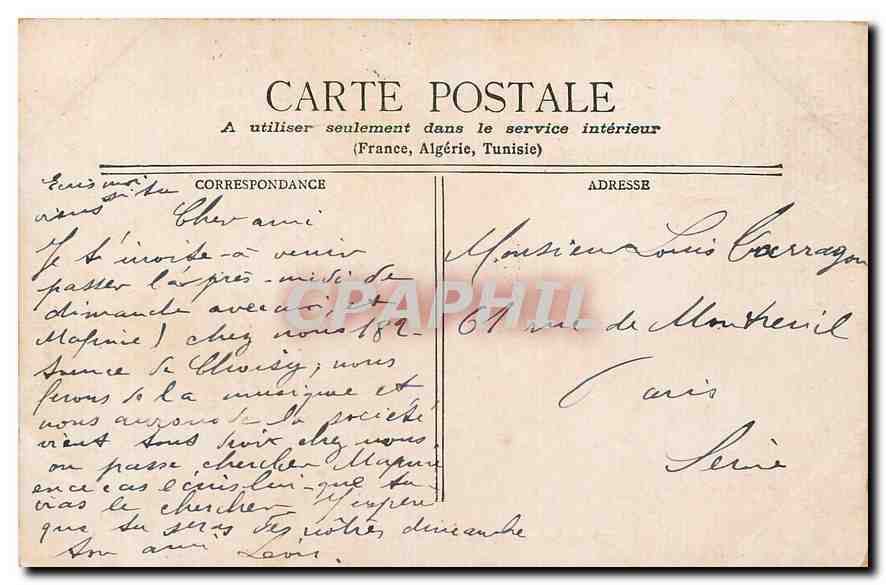 CARTE POSTALE
A utiliser seulement dans le service intérieur
(France, Algérie, Tunisie)
CORRESPONDANCE
Ecris moi
si tu
viens
Cher ami
Je t'invite à venir
passer l'après-midi de
dimanche avec
chez nous 182
de Choisy, nous
ferons de la musique et
nous aurons de la société
vient tous chez nous
ou passe chercher
en ce cas écris lui que tu
vas le chercher J'espère
que tu seras des nôtres dimanche
ton ami Léon.
ADRESSE
Monsieur Louis Tarragon
61 rue de Montreuil
Paris
Seine
CPAPHIL